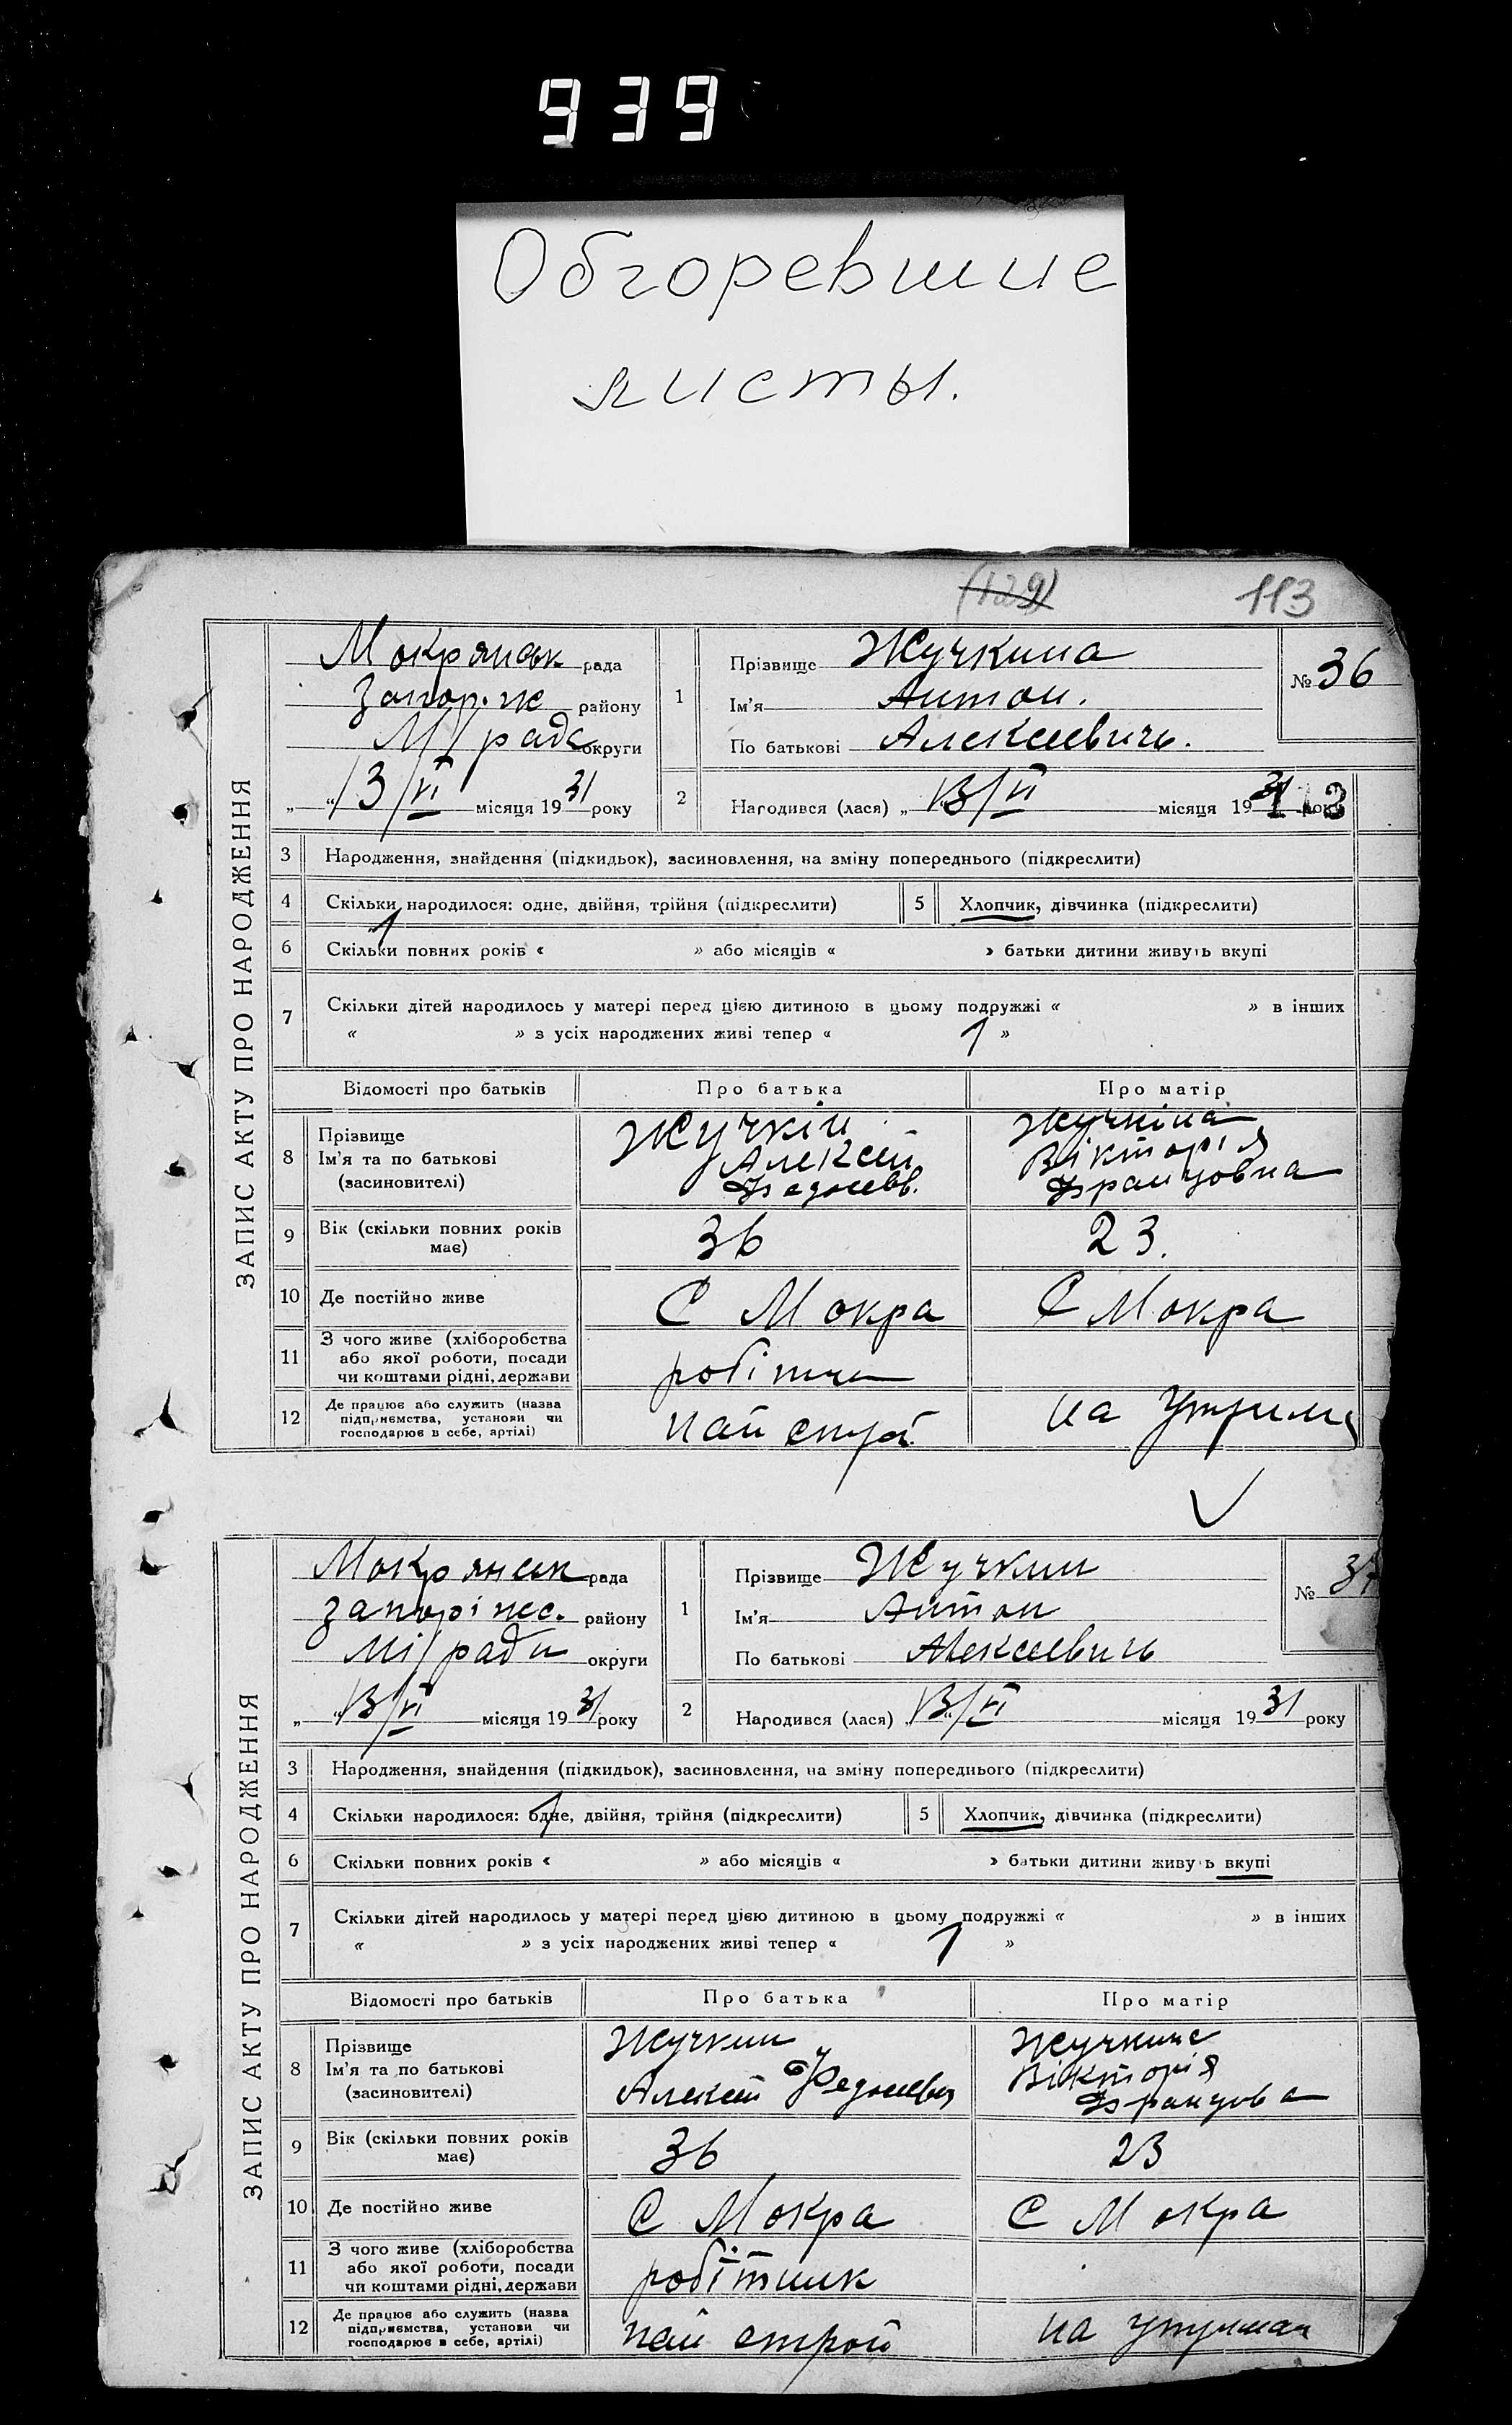 939
Обгоревшие
листы.
(129) 113
ЗАПИС АКТУ ПРО НАРОДЖЕННЯ
Мокрянск рада
Запор. ж району
М/рада округи
„ “ 13/VI місяця 1931 року
1
Прізвище Жучкина
Ім'я Антон.
По батькові Алексеевичь.
№ 36
2 Народився (лася) „ 13/VI місяця 1931 року
113
3 Народження, знайдення (підкидьок), засиновлення, на зміну попереднього (підкреслити)
4 Скільки народилося: одне, двійня, трійня (підкреслити) 5 Хлопчик, дівчинка (підкреслити)
1
6 Скільки повних років « » або місяців « » батьки дитини живуть вкупі
7 Скільки дітей народилось у матері перед цією дитиною в цьому подружжі « » в інших
« » з усіх народжених живі тепер « 1 »
Відомості про батьків Про батька Про матір
8 Прізвище
Ім'я та по батькові
(засновителі)
Жучкін
Алексей
Федосеев.
Жучкіна
Вікторія
Францовна
9 Вік (скільки повних років
має)
36 23.
10 Де постійно живе С Мокра С Мокра
11 З чого живе (хліборобства
або якої роботи, посади
чи коштами рідні, держави
12 Де працює або служить (назва
підприємства, установи чи
господарює в себе, артілі)
на
ЗАПИС АКТУ ПРО НАРОДЖЕННЯ
Мокрянск рада
Запоріжс. району
Мі/ради округи
„ “ 13/VI місяця 1931 року
1
Прізвище Жучкин
Ім'я Антон
По батькові Алексеевичь
№ 37
2 Народився (лася) „ 13/VI місяця 1931 року
3 Народження, знайдення (підкидьок), засиновлення, на зміну попереднього (підкреслити)
4 Скільки народилося: одне, двійня, трійня (підкреслити) 5 Хлопчик, дівчинка (підкреслити)
6 Скільки повних років « » або місяців « » батьки дитини живуть вкупі
7 Скільки дітей народилось у матері перед цією дитиною в цьому подружжі « » в інших
« » з усіх народжених живі тепер « 1 »
Відомості про батьків Про батька Про матір
8 Прізвище
Ім'я та по батькові
(засиновителі)
Жучкин
Алексей
Жучкине
Вікторія
Францова
9 Вік (скільки повних років
має)
36 23
10 Де постійно живе С Мокра С Мокра
11 З чого живе (хліборобства
або якої роботи, посади
чи коштами рідні, держави
робітник
12 Де працює або служить (назва
підприємства, установи чи
господарює в себе, артілі)
на